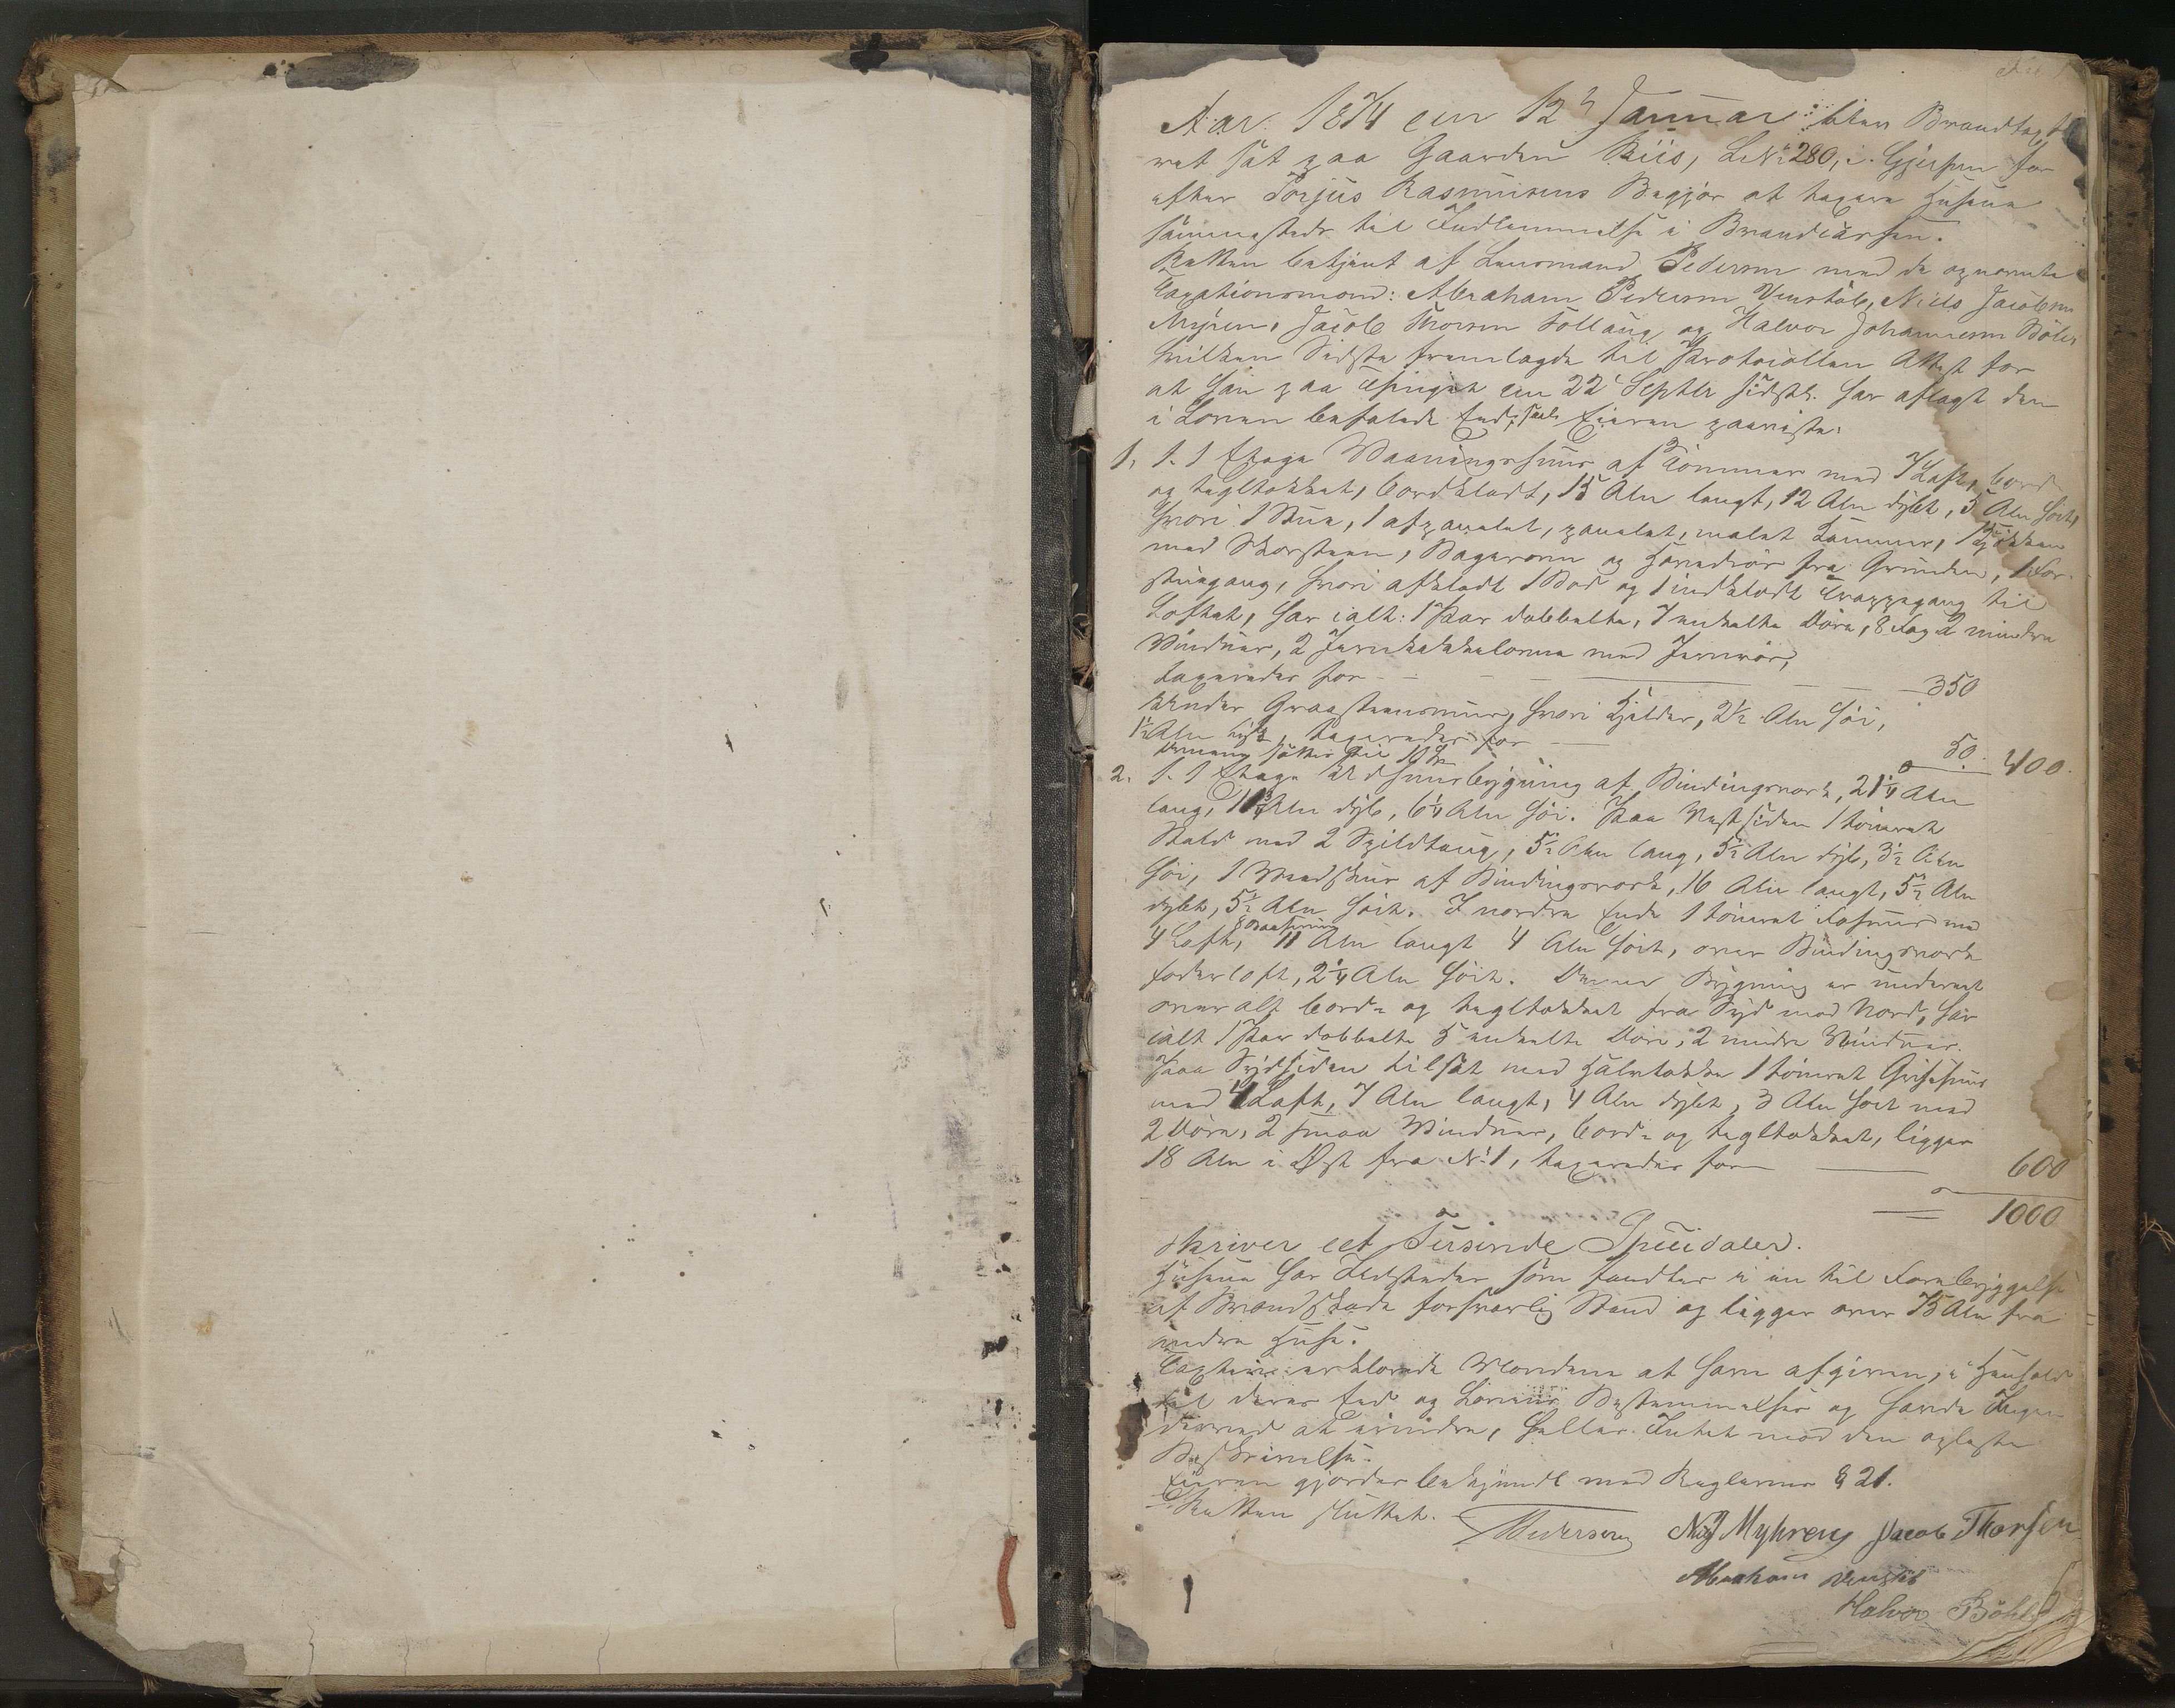 Aar 1874 den 12te Januar blev Brandtaxt
ret sat paa Gaarden Riis, LNr 280, i Gjerpen for
efter Torjus Rasmusens Begjær at taxere Husene
sammesteds til Indlemmelse i Brandcassen.
Retten betjent af Lensmand Pedersen med de opnævnte
Taxationsmænd: Abraham Pedersen Venstøb, Niels Jacobsen
Myren, Jacob Thorsen Follaug og Halvor Johannesen Böle,
hvilken Sidste fremlagde til Protocollen Attest for
at han paa Thinget den 22 Septbr sidstl. har aflagt den
i Loven befalede Eed, samt Eieren paaviste:
1. 1. 1 Etage Vaaningshuus af Tømmer med 7 Laft, bord
og tegltækket, bordklædt, 15 Alen langt, 12 Alen dybt, 5 Alen høit,
hvori 1 Stue, 1 afpanelet, panelet, malet Kammer, 1 Kjøkken
med Skorsteen, Bagerovn og fra Grunden, 1 For-
stuegang, hvori afklædt 1 Bod og 1 indklædt Trappegang til
Loftet, har ialt: 1 Par dobbelte, 7 enkelte Döre, 8 Fag 2 mindre
Vinduer, 2 Jernkakkelovne med Jernrör,
taxeredes for - - - 350
Under Graasteensmuur, hvori Kjelder, 2½ Alen höi,
1½ Alen tyk, taxeredes for — 50. 400.
2. 1. 1 Etage Udhuusbygning af Bindingsværk, 21¼ Alen
lang, 11¾ Alen dyb, 6¼ Alen höi. Paa Vestsiden 1 tömret
Stald med 2 Spildtoug, 5½ Alen lang, 5½ Alen dyb, 3½ Alen
höi, 1 Vedskuur af Bindingsværk, 16 Alen langt, 5½ Alen
dybt, 5½ Alen höit. I nordre Ende 1 tömret Fæhuus med
4 Laft, 11 Alen langt 4 Alen höit, over Bindingsværk
Foderloft, 2¼ Alen höit. Denne Bygning er
overalt bord- og tegltækket fra Syd mod Nord, har
ialt 1 Par dobbelte 5 enkelte Döre, 2 mindre Vinduer.
Paa Sydsiden tilsat med Halvtække 1 tömret Grisehuus
med 4 Laft, 7 Alen langt, 4 Alen dybt, 3 Alen höit med
2 Döre, 2 smaa Vinduer, bord- og tegltækket, ligger
18 Alen i Øst fra No 1, taxeredes for — 600
1000
skriver eet Tusinde Speciedaler.
Husene har Ildsteder som fandtes i en til Forebyggelse
af Brandskade forsvarlig Stand og ligger over 75 Alen fra
andre Huse.
Taxten erklærede Mændene at have afgiven, i Henhold
til deres Eed og Lovens Bestemmelser og havde Ingen
derved at erindre, heller Intet mod den oplæste
Beskrivelse.
Eieren gjordes bekjendt med Reglernes § 21.
Retten sluttet. Pedersen N J Myhren Jacob Thorsen
Abraham Venstøb
Halvor Böhle